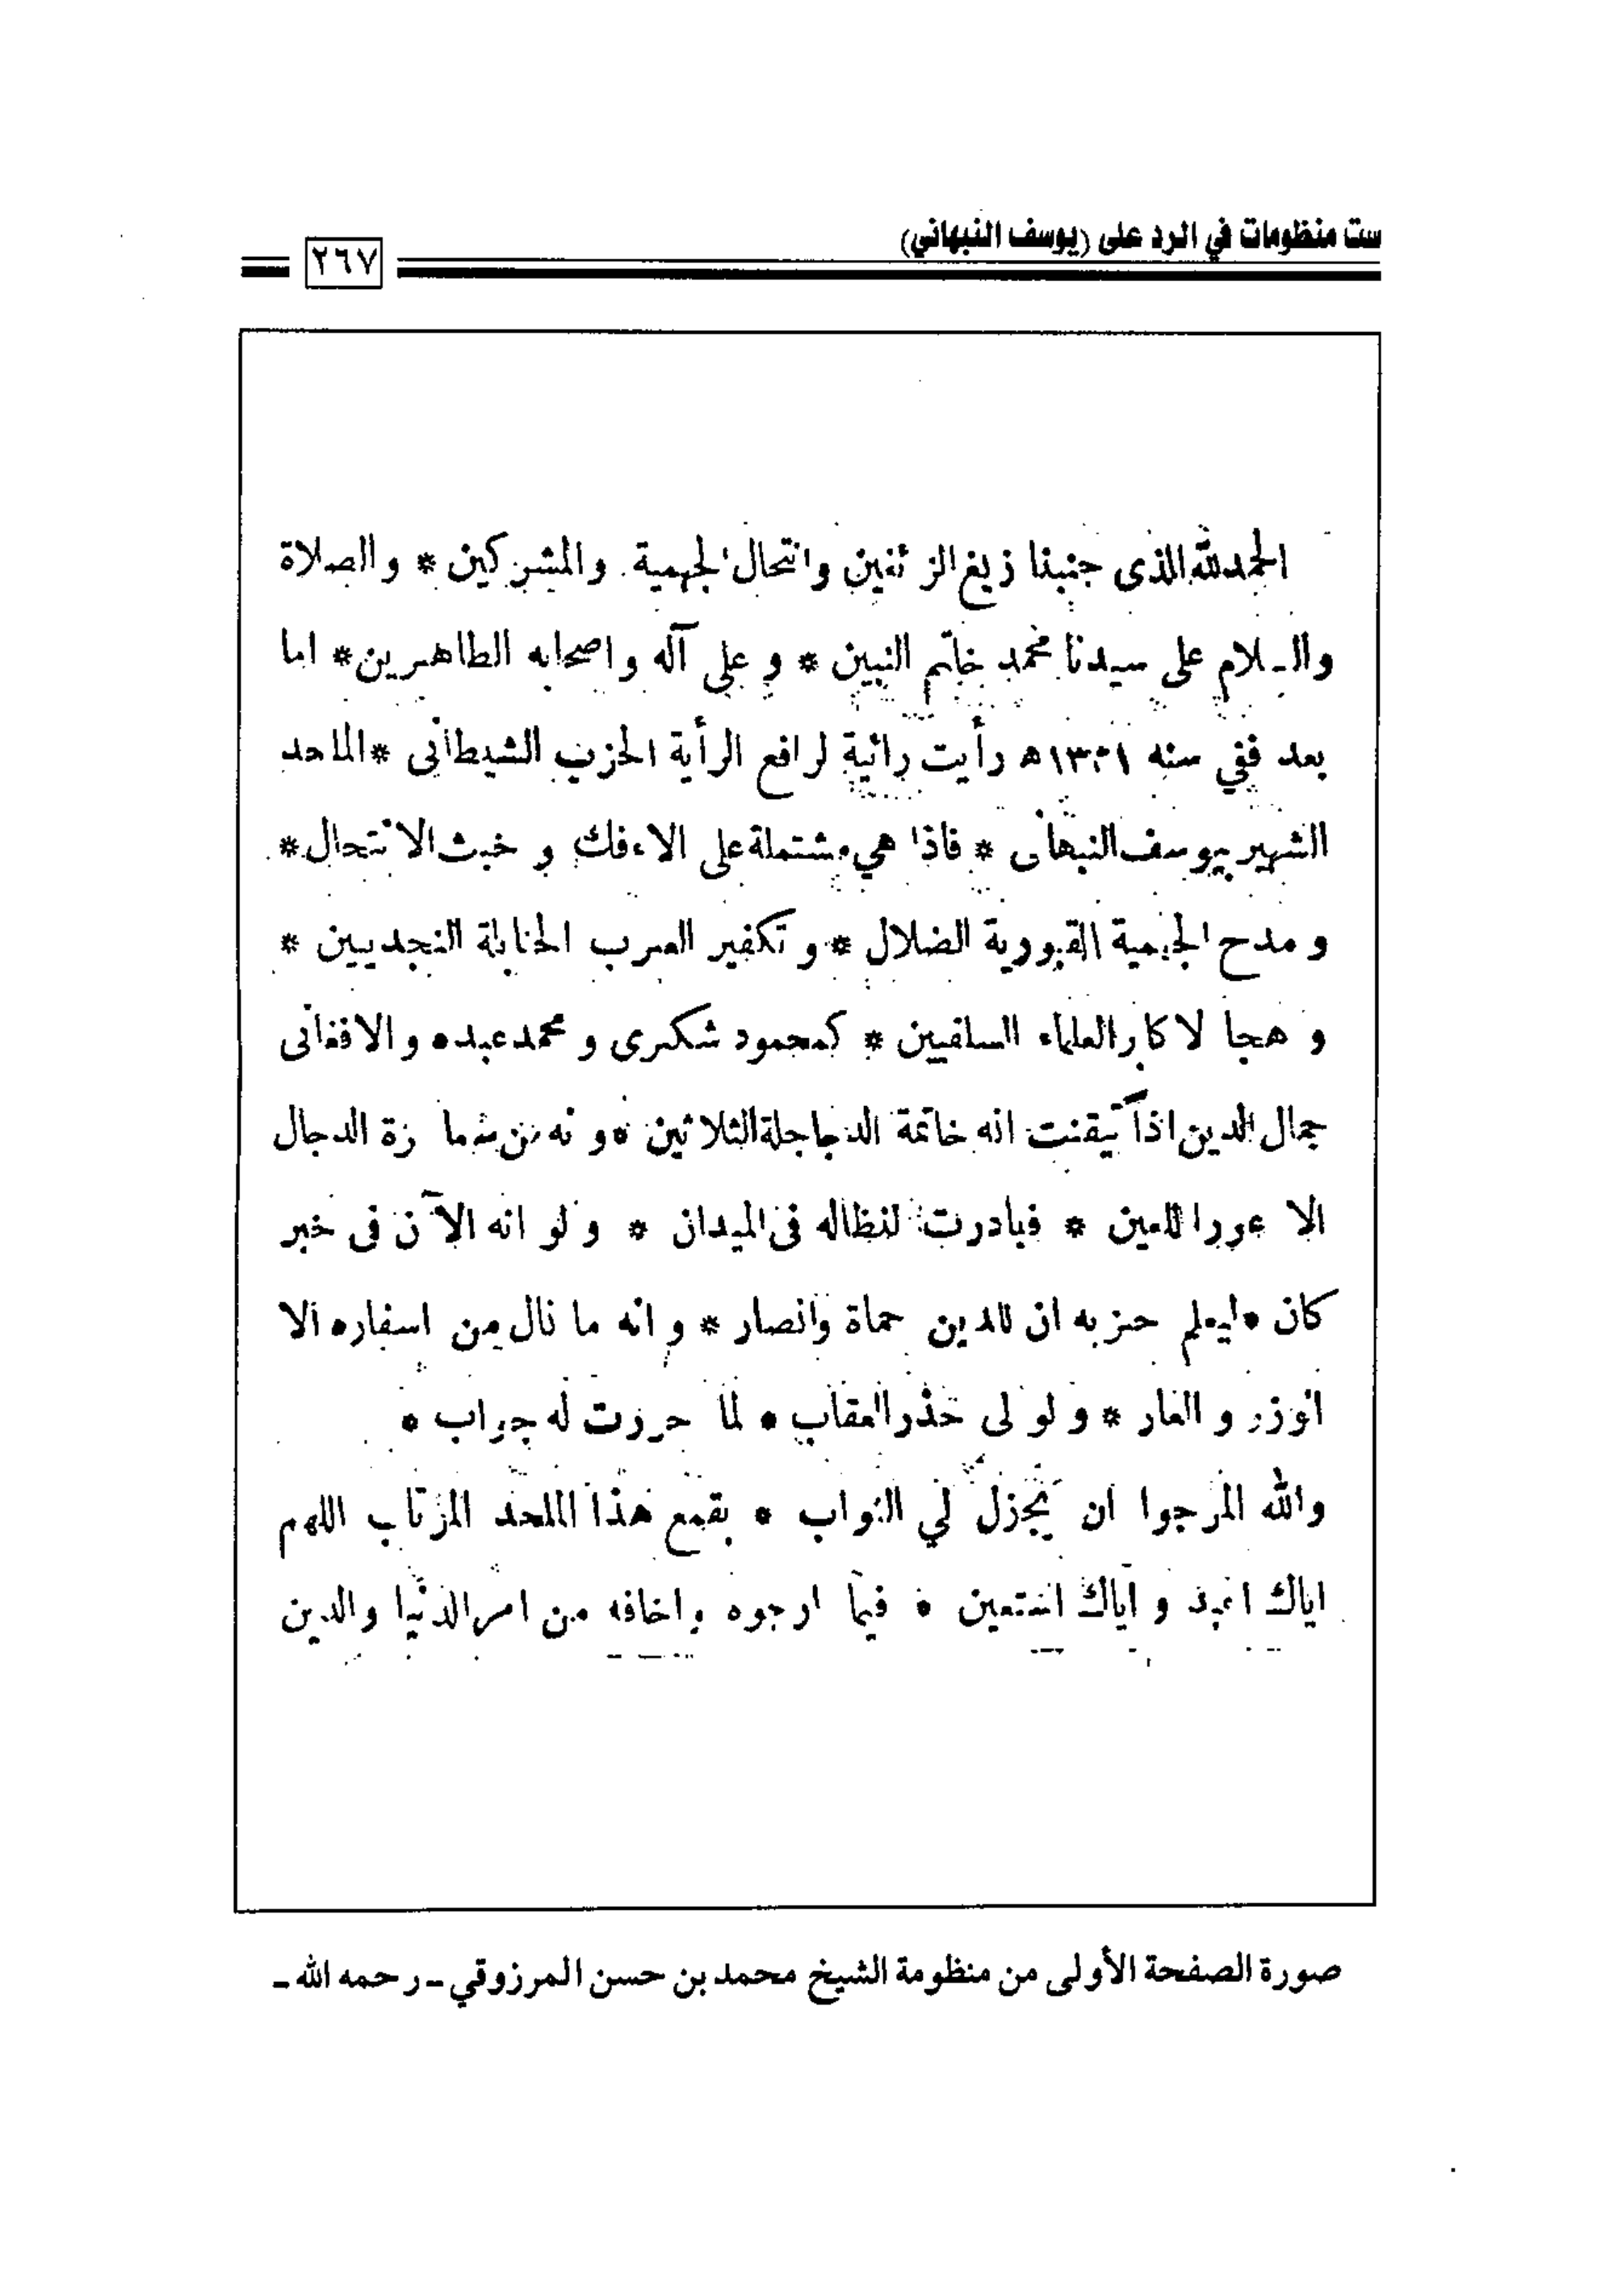 ست منظومات في الرد على (يوسف النبهاني)
٢٦٧
الحمد لله الذى جنبنا زيغ الزائغين وانتحال الجهمية والمشركين * والصلاة
والسلام على سيدنا محمد خاتم النبين * و على آله واصحابه الطاهرين * اما
بعد ففي سنه ١٣٢١ه رأيت رائية لرافع الرأية الحزب الشيطانى * الملحد
الشهير بيوسف النبهانى * فاذا هي مشتملة على الاءفك و خبث الانتحال *
و مدح الجهمية القبورية الضلال * و تكفير العرب الحنابلة النجديين *
و هجا لاكابر العلماء السلفيين * كمحمود شكرى و محمد عبده والافغانى
جمال الدين اذا تيقنت انه خاتمة الدجاجلة الثلاثين * و زة الدجال
الا عور اللعين * فبادرت لنظاله فى الميدان * و لو انه الآن فى خبر
كان * ليعلم حزبه ان للدين حماة وانصار * و انه ما نال من اسفاره الا
الوزر و العار * و لو لى حذر العقاب * لما حررت له جواب *
والله المرجوا ان يجزل لي الثواب * بقمع هذا الملحد المرتاب اللهم
اياك اعبد و اياك استعين * فيما ارجوه واخافه من امر الدنيا والدين
صورة الصفحة الأولى من منظومة الشيخ محمد بن حسن المرزوقي ـ رحمه الله ـ